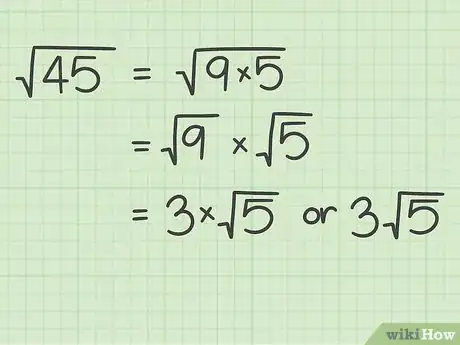 √45 = √9×5
= √9 × √5
= 3×√5 or 3√5
wikiHow